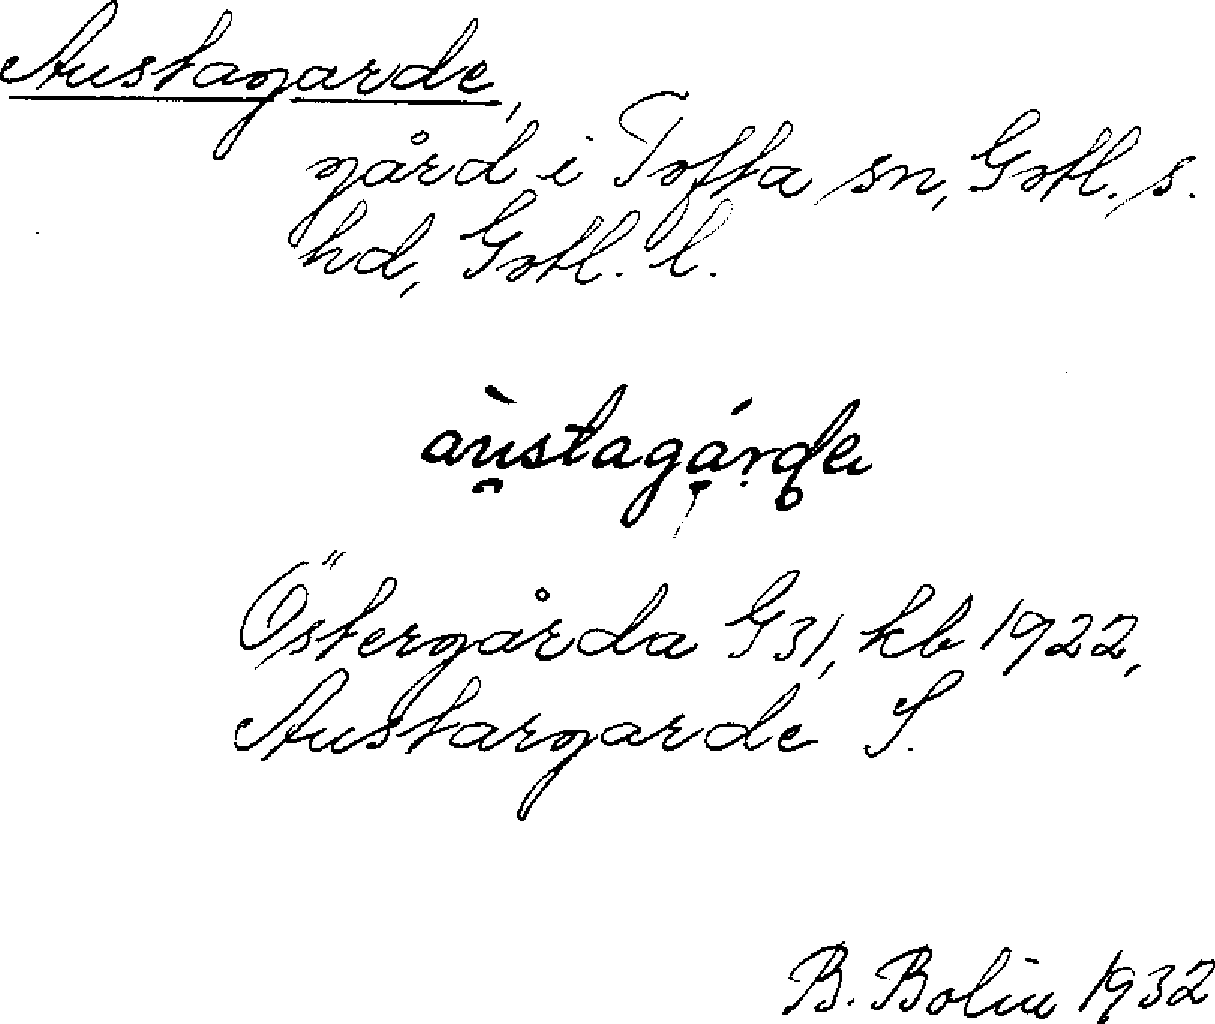 Austagarde,
gård i Tofta sn, Gotl. s.
hd, Gotl. l.
àu̯stagá̩rde
Östergårda G31, kb 1922,
Austargarde S.
B. Bolin 1932